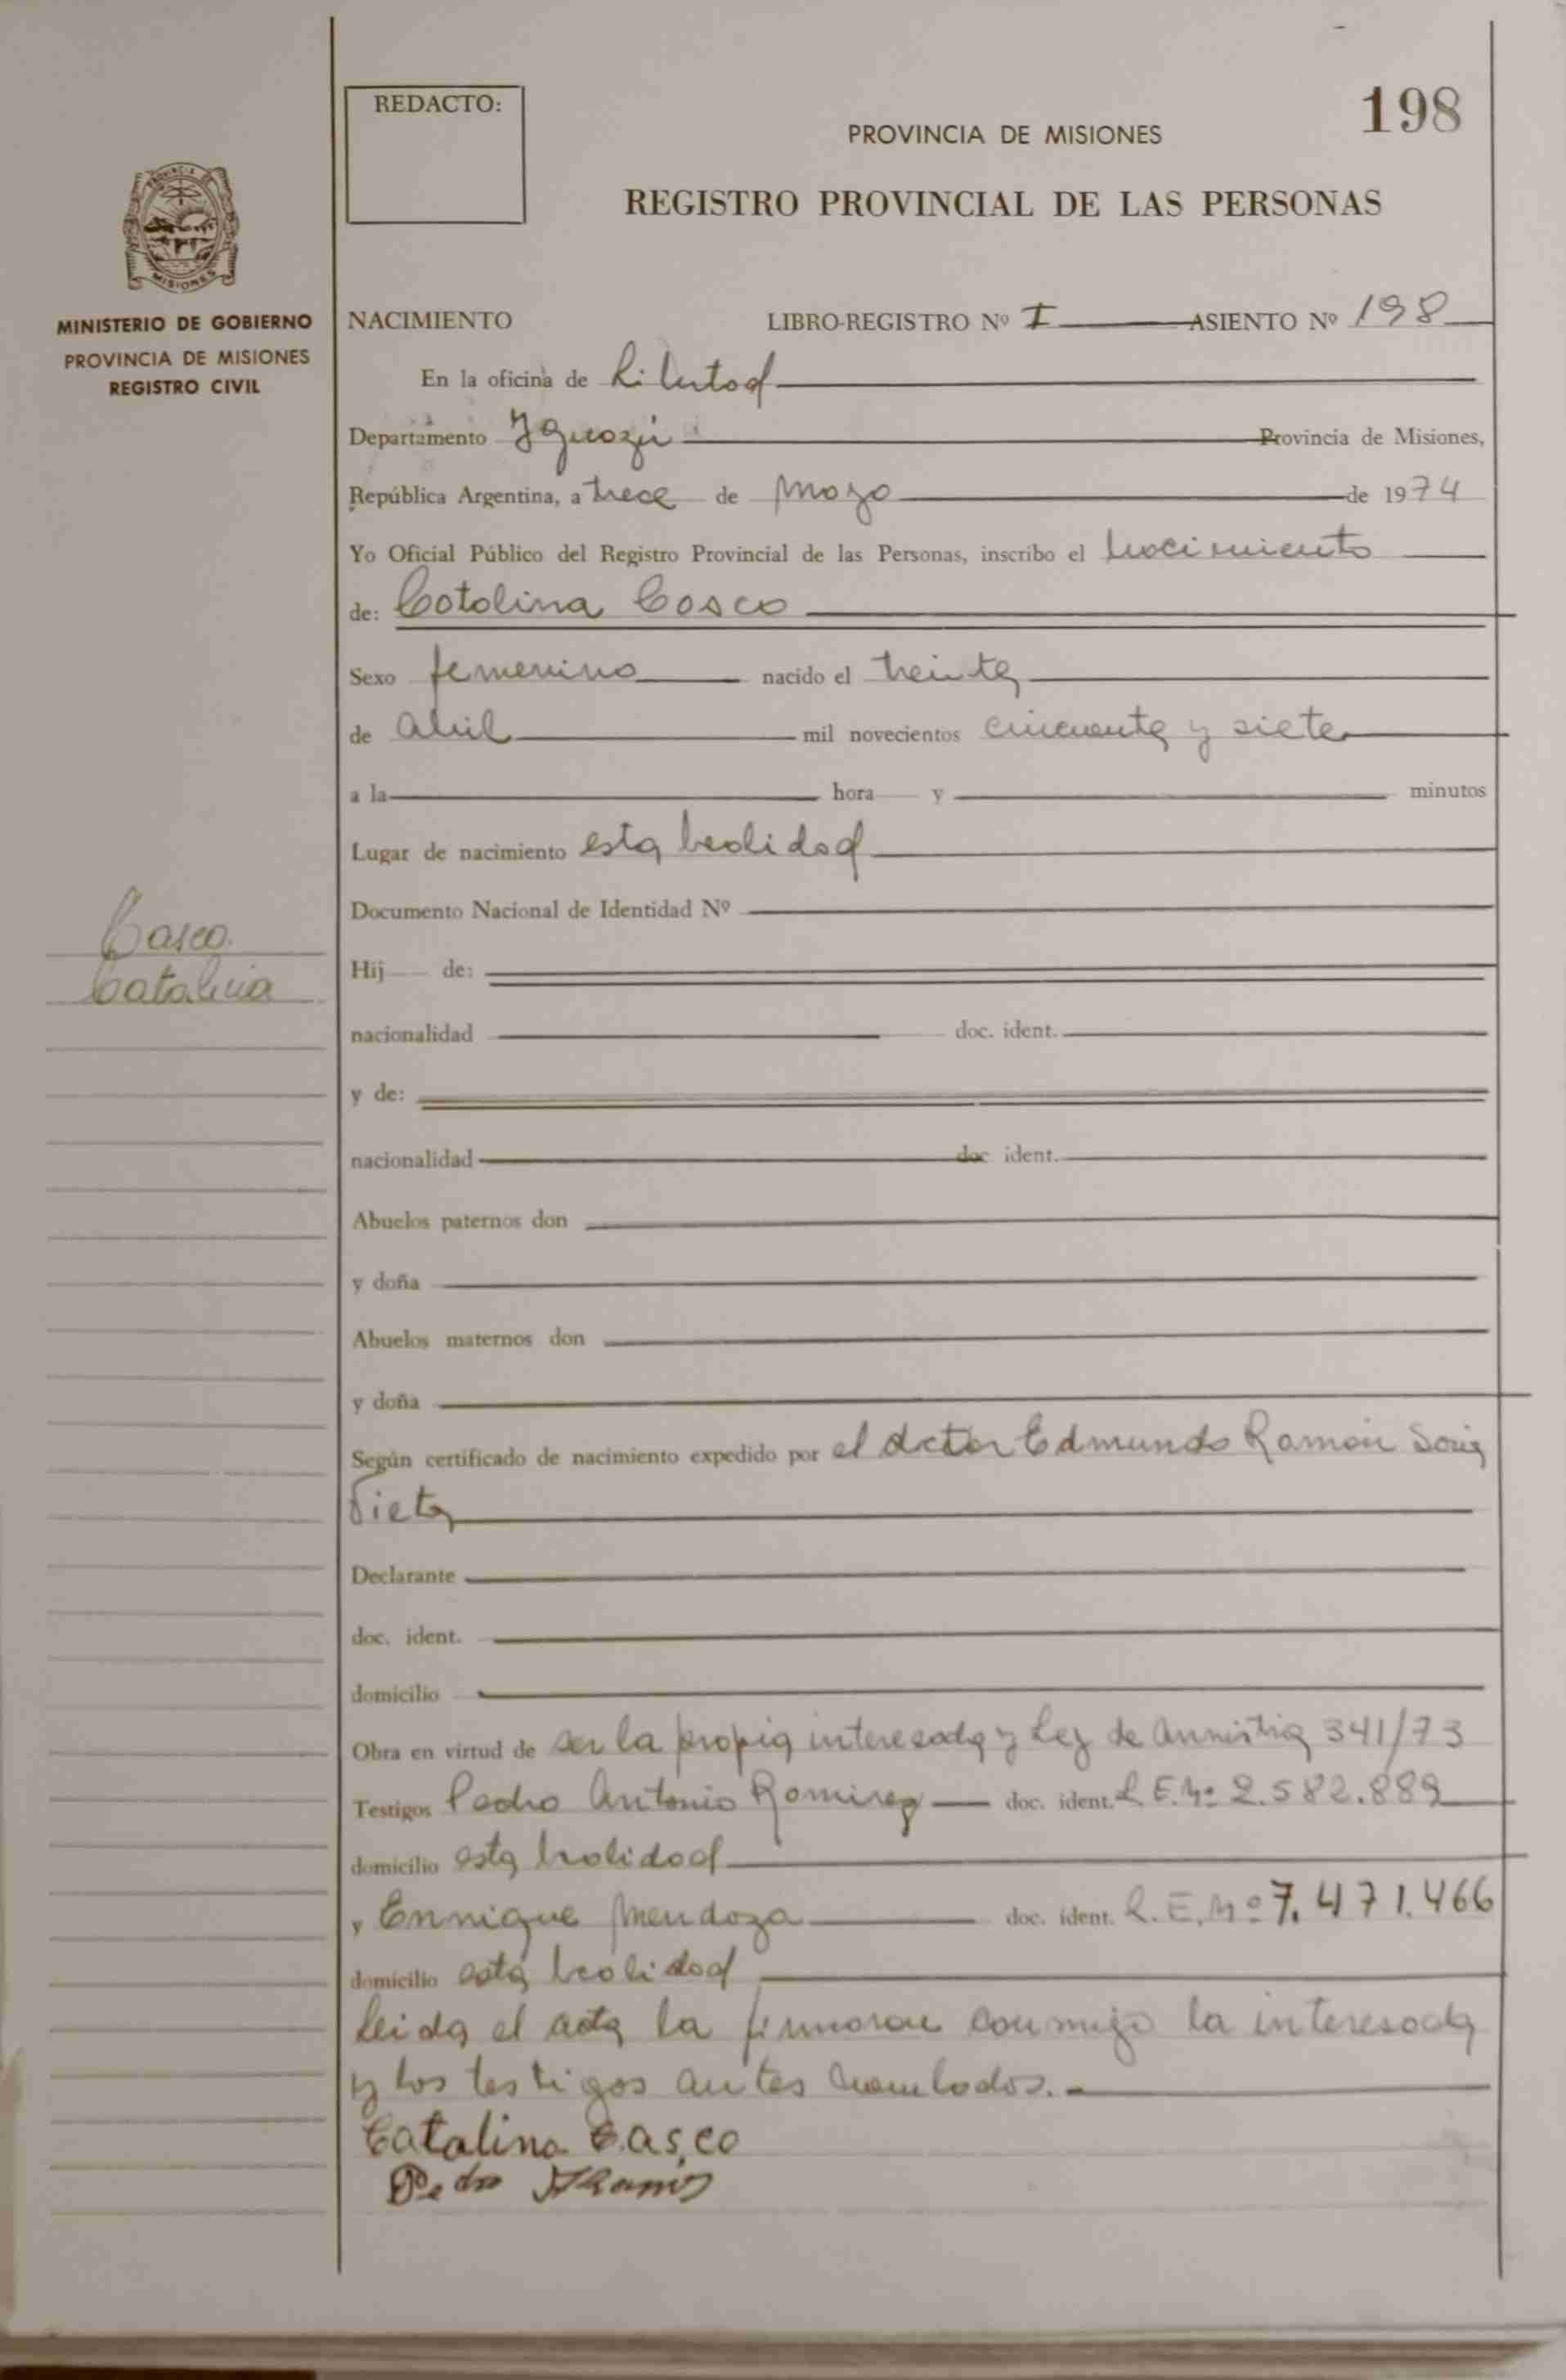 198
REDACTO:
PROVINCIA DE MISIONES
REGISTRO PROVINCIAL DE LAS PERSONAS
MISIONES
MINISTERIO DE GOBIERNO
PROVINCIA DE MISIONES
REGISTRO CIVIL
NACIMIENTO LIBRO-REGISTRO Nº I ASIENTO Nº 198
En la oficina de Libertad
Departamento Iguazú Provincia de Misiones,
República Argentina, a trece de mayo de 1974
Yo Oficial Público del Registro Provincial de las Personas, inscribo el nacimiento
de: Catalina Casco
Sexo femenino nacido el treinta
de abril mil novecientos cincuenta y siete
a la hora y minutos
Lugar de nacimiento esta localidad
Documento Nacional de Identidad Nº
Casco
Catalina
Hij de:
nacionalidad doc. ident.
y de:
nacionalidad doc ident.
Abuelos paternos don
y doña
Abuelos maternos don
y doña
Según certificado de nacimiento expedido por el doctor Edmundo Ramón
Declarante
doc. ident.
domicilio
Obra en virtud de ser la propia interesada y Ley de Amnistia 341/73
Testigos Pedro Antonio Ramirez doc. ident. L.E. Nº 2.582.889
domicilio esta localidad
y Enrique Mendoza doc. ident. L.E. Nº 7.471.466
domicilio esta localidad
Leida el acta la firmaron conmigo la interesada
y los testigos antes nombrados.-
Catalina Casco
Pedro